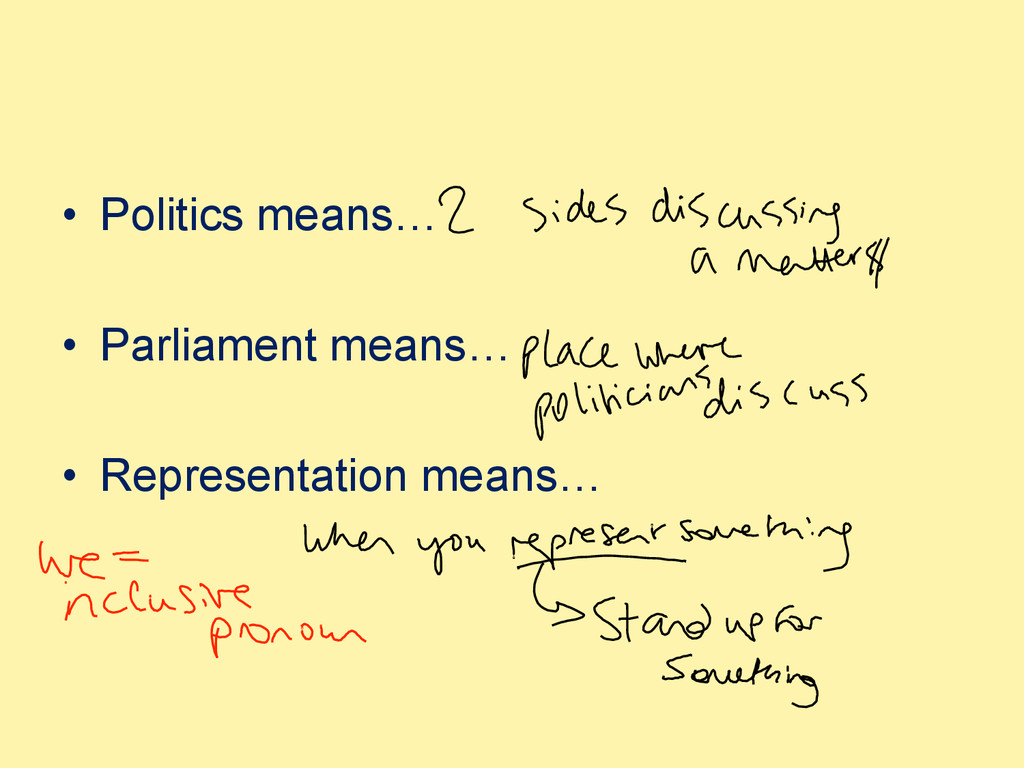 • Politics means… 2 sides discussing
a matter
• Parliament means… place where
politicians discuss
• Representation means…
when you represent something
we =
inclusive
pronoun
Stand up for
something